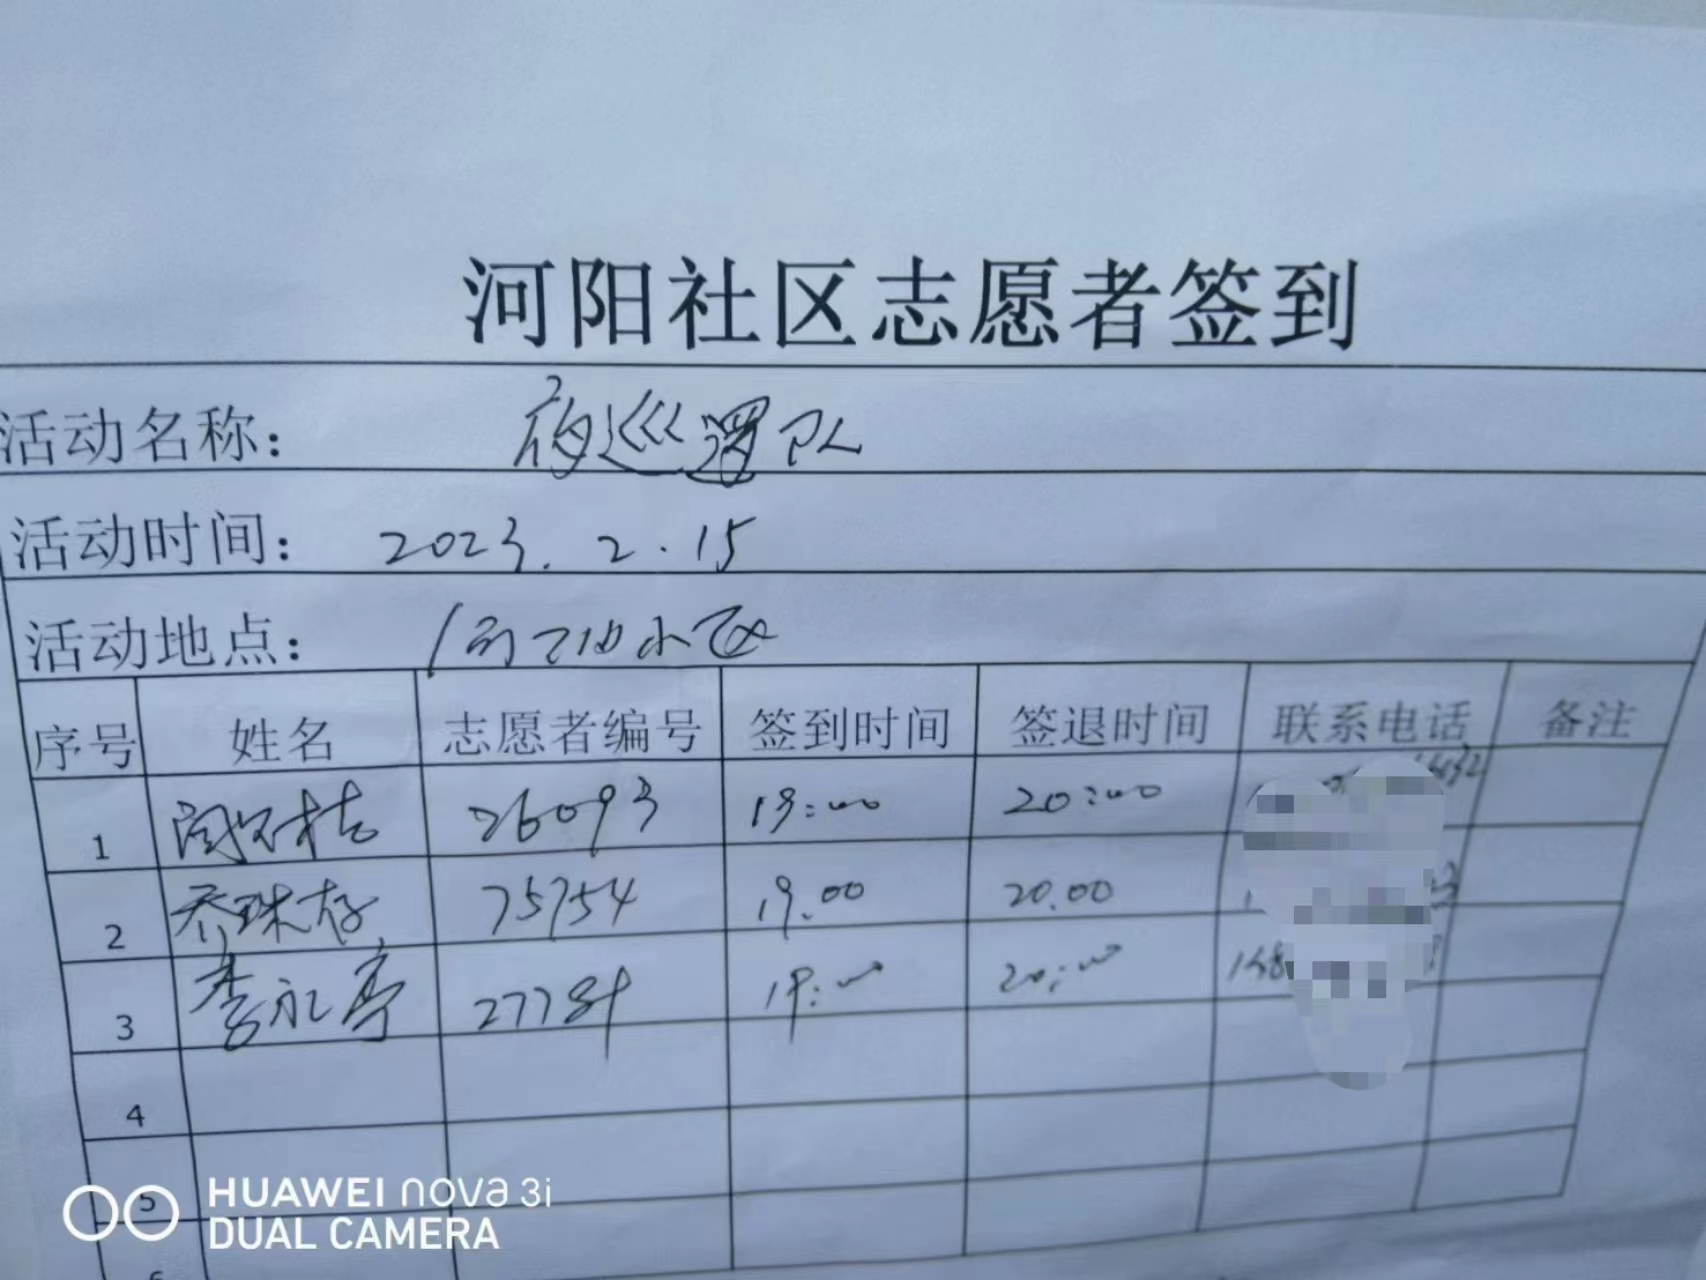 河阳社区志愿者签到
活动名称： 夜巡逻队
活动时间： 2023.2.15
活动地点： 小区
序号 姓名 志愿者编号 签到时间 签退时间 联系电话 备注
1 26093 19:00 20:00
2 乔珠存 75754 19.00 20.00
3 李永亭 19:00 20:00
4
5
6
HUAWEI nova 3i
DUAL CAMERA